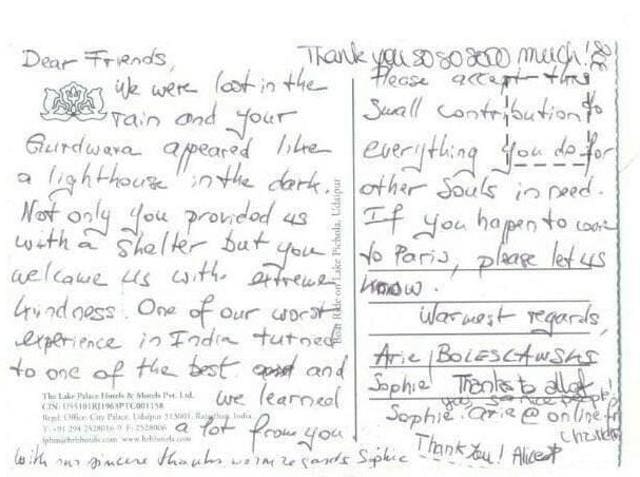 Dear Friends,
We were lost in the
rain and your
Gurdwara appeared like
a lighthouse in the dark.
Not only you provided us
with a shelter but you
welcome us with extreme
kindness. One of our worst
experience in India turned
to one of the best and
we learned
a lot from you
With our sincere thanks warm regards Sophie
The Lake Palace Hotels & Motels Pvt. Ltd.
CIN: U55101RJ1963PTC001158
Regd. Office: City Palace, Udaipur 313001, Rajasthan, India
T: +91 294 2528016-9 F: 2528006
www.hrhhotels.com
Boat Ride on Lake Pichola, Udaipur
Thank you so so sooo much!
Please accept this
small contribution to
everything you do for
other souls in need.
If you happen to come
to Paris, please let us
know.
Warmest regards,
Arie
Sophie Thanks to all of
Sophie.arie@online.fr
Thank you! Alice